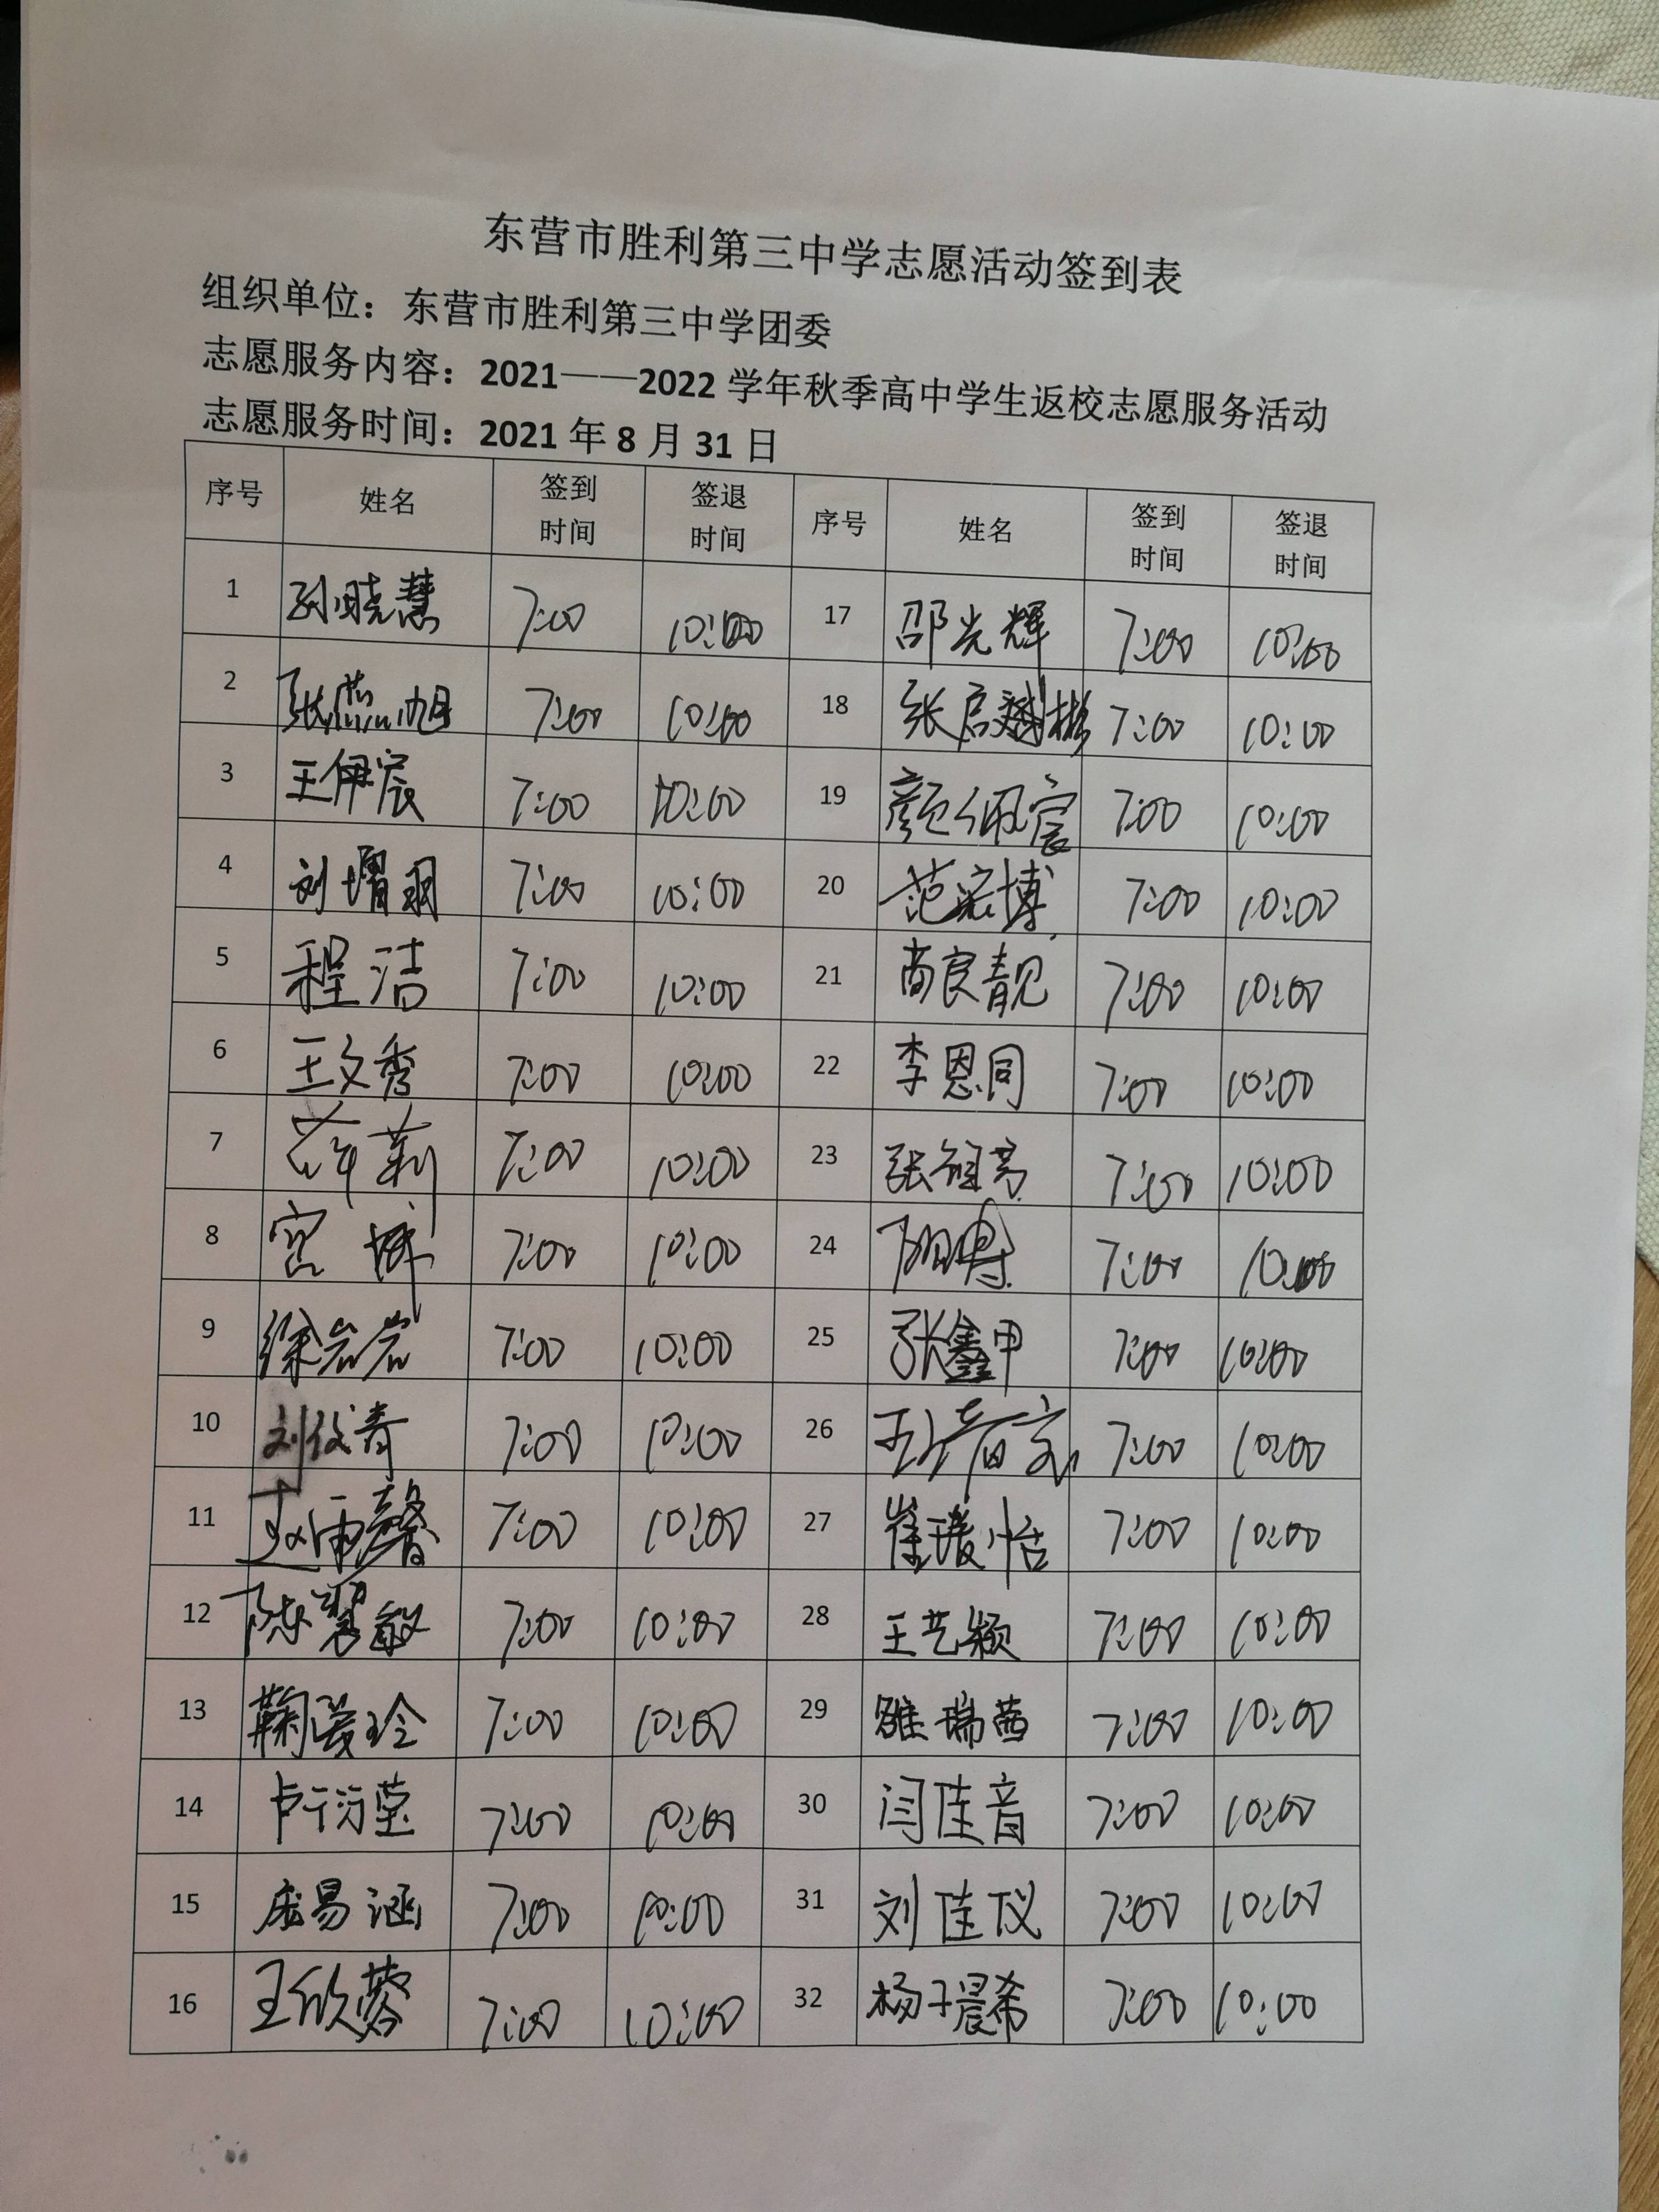 东营市胜利第三中学志愿活动签到表
组织单位：东营市胜利第三中学团委
志愿服务内容：2021——2022 学年秋季高中学生返校志愿服务活动
志愿服务时间：2021 年 8 月 31 日
序号 姓名 签到时间 签退时间 序号 姓名 签到时间 签退时间
1 孙晓慧 7:00 10:00 17 邵光辉 7:00 10:00
2 张燕旭 7:00 10:00 18 张启 7:00 10:00
3 王伊宸 7:00 10:00 19 颜佩宸 7:00 10:00
4 刘 7:00 10:00 20 范宏博 7:00 10:00
5 程洁 7:00 10:00 21 尚良靓 7:00 10:00
6 王文秀 7:00 10:00 22 李恩同 7:00 10:00
7 薛莉 7:00 10:00 23 张 7:00 10:00
8 宫 7:00 10:00 24 7:00 10:00
9 徐岩岩 7:00 10:00 25 张鑫甲 7:00 10:00
10 刘 7:00 10:00 26 王 7:00 10:00
11 赵雨馨 7:00 10:00 27 崔瑗怡 7:00 10:00
12 陈翠敏 7:00 10:00 28 王艺颖 7:00 10:00
13 鞠爱玲 7:00 10:00 29 雒瑞茜 7:00 10:00
14 卢 7:00 10:00 30 闫佳音 7:00 10:00
15 易涵 7:00 10:00 31 刘佳仪 7:00 10:00
16 王欣蓉 7:00 10:00 32 杨子晨希 7:00 10:00